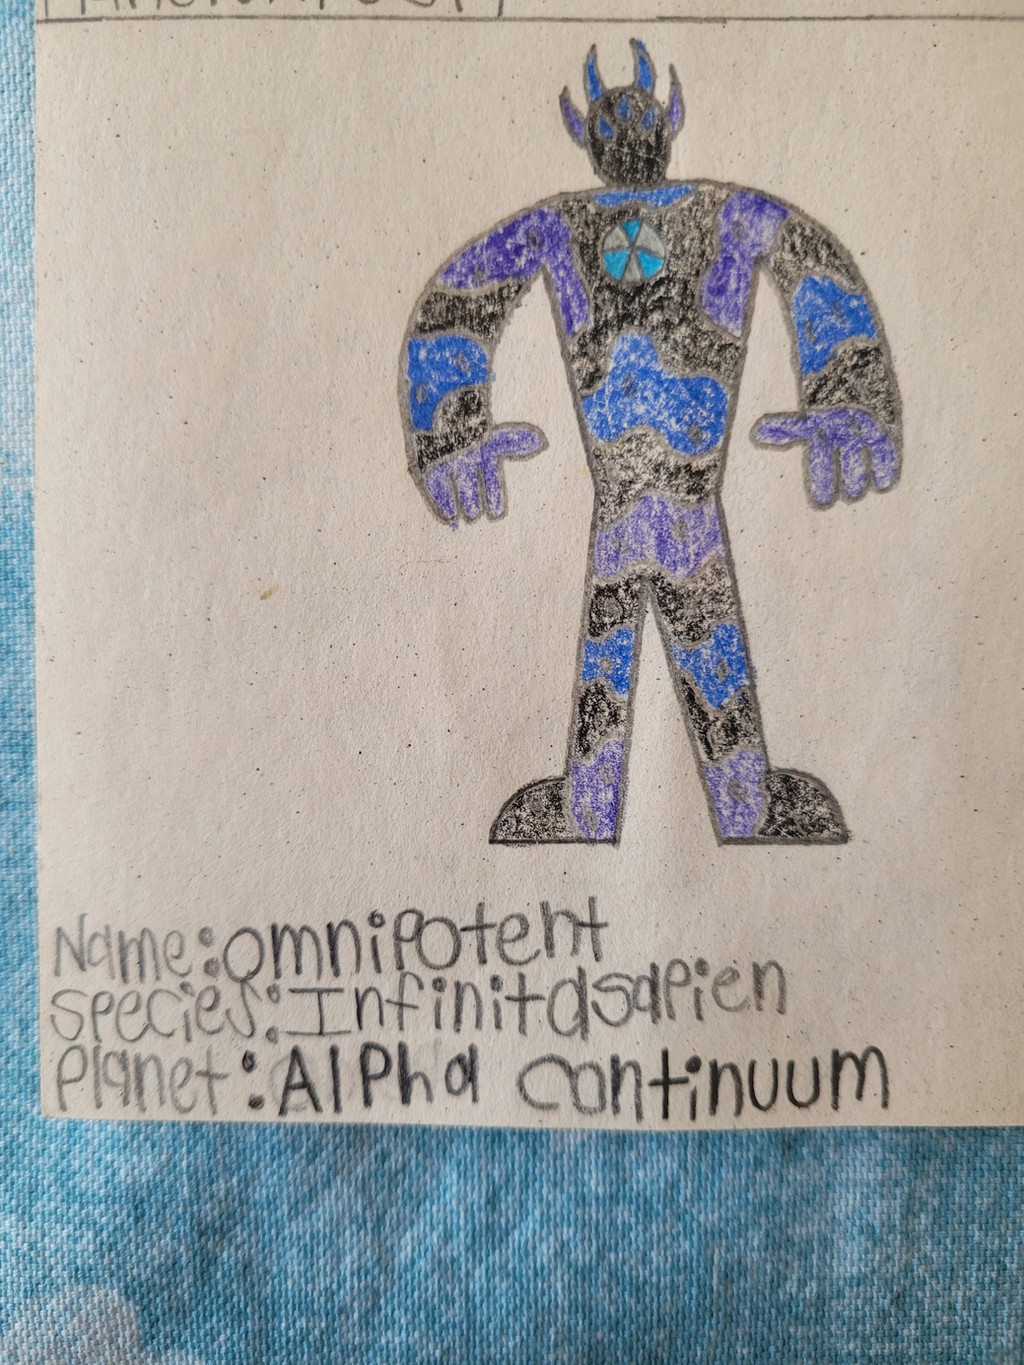 Name:omnipotent
species:Infinitasapien
Planet:Alpha continuum